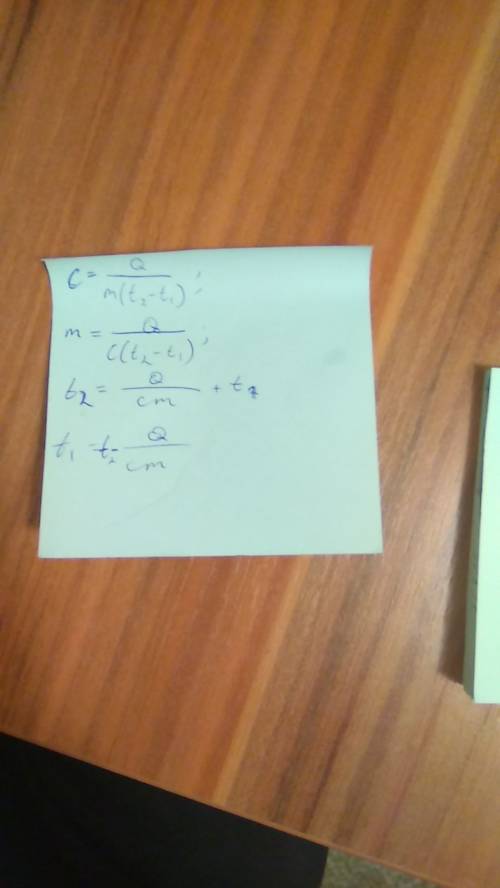 c = Q / m(t₂-t₁) ;
m = Q / c(t₂-t₁) ;
t₂ = Q / cm + t₁
t₁ = t₂ - Q / cm